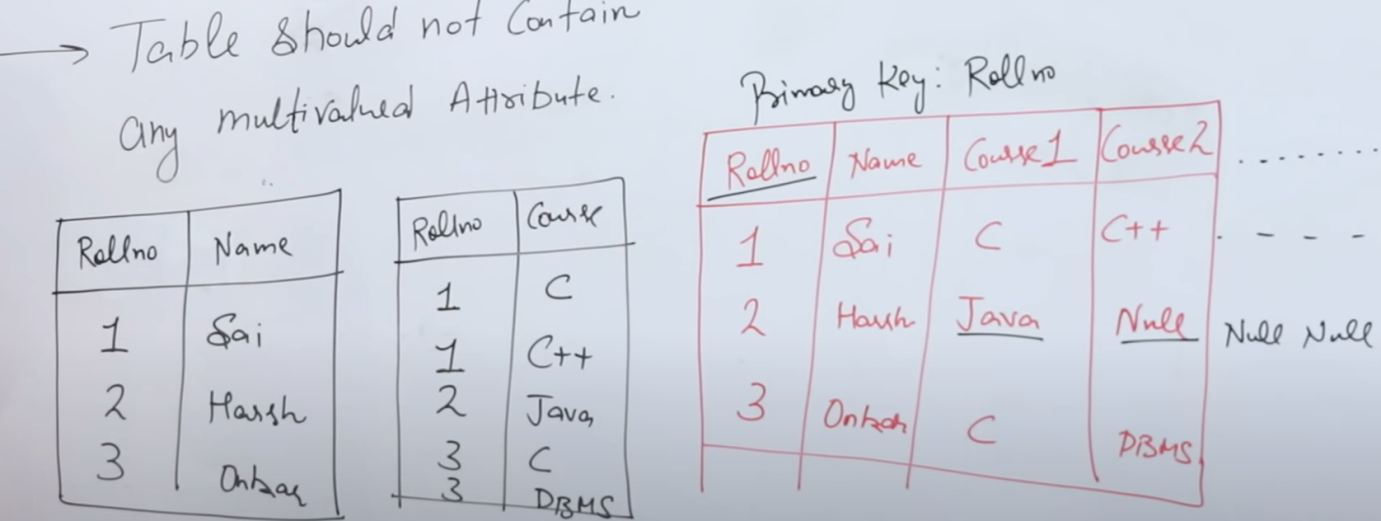 → Table should not Contain
any multivalued Attribute.
Rollno Name
1 Sai
2 Harsh
3 Onkar
Rollno Course
1 C
1 C++
2 Java
3 C
3 DBMS
Primary Key: Rollno
Rollno Name Course1 Course2 ........
1 Sai C C++ . - - -
2 Harsh Java Null Null Null
3 Onkar C DBMS